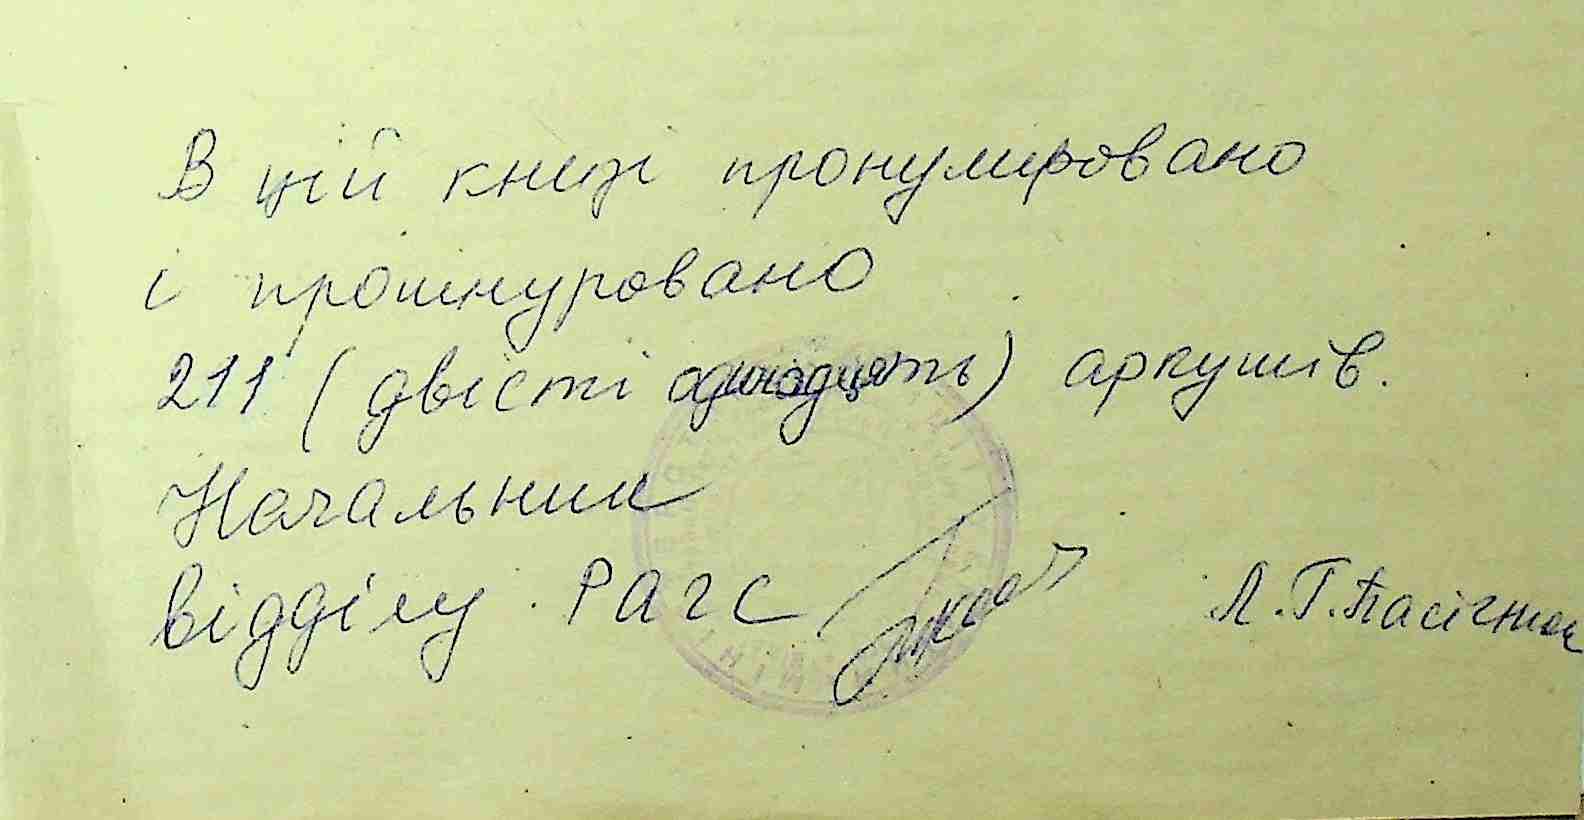 В цій книзі пронумировано
і прошнуровано
211 (двісті одинадцять) аркушів.
Начальник
відділу РАГС Л.Г.Пасічник